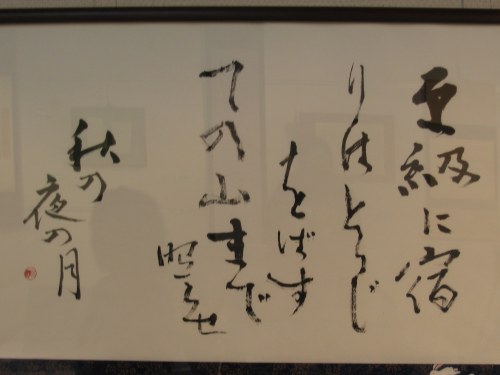 更級に宿
りはとらじ
をばす
ての山まで
照らせ
秋の
夜の月